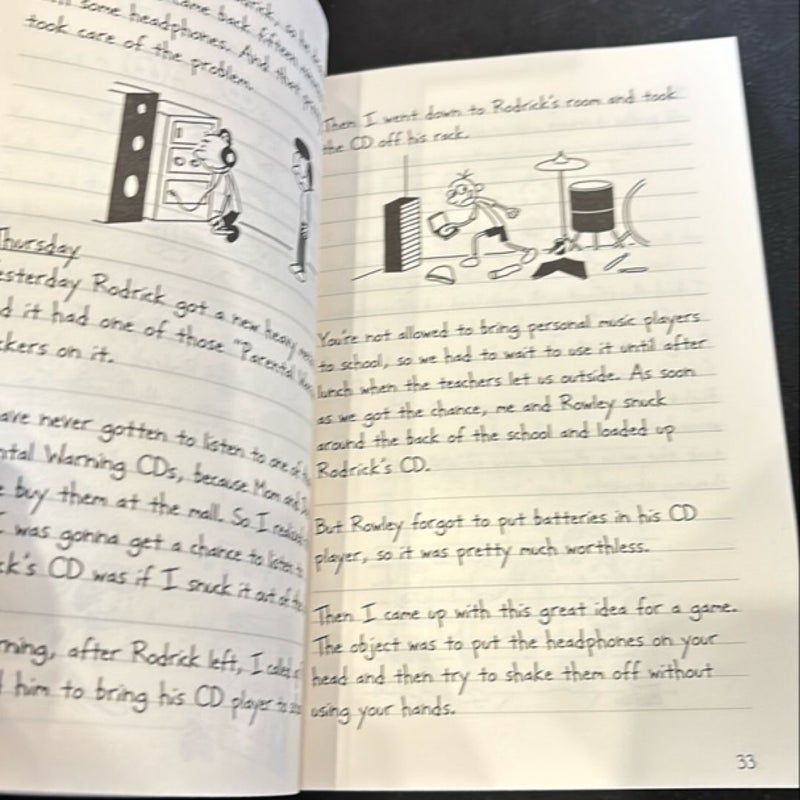 some headphones. And then
took care of the problem.
Thursday
Yesterday Rodrick got a new heavy
it had one of those "Parental
on it.
have never gotten to listen to one of
Warning CDs, because Mom and
buy them at the mall. So I
I was gonna get a chance to listen to
CD was if I snuck it out of the
after Rodrick left, I called
him to bring his CD player to
Then I went down to Rodrick's room and took
the CD off his rack.
You're not allowed to bring personal music players
to school, so we had to wait to use it until after
lunch when the teachers let us outside. As soon
as we got the chance, me and Rowley snuck
around the back of the school and loaded up
Rodrick's CD.
But Rowley forgot to put batteries in his CD
player, so it was pretty much worthless.
Then I came up with this great idea for a game.
The object was to put the headphones on your
head and then try to shake them off without
using your hands.
33